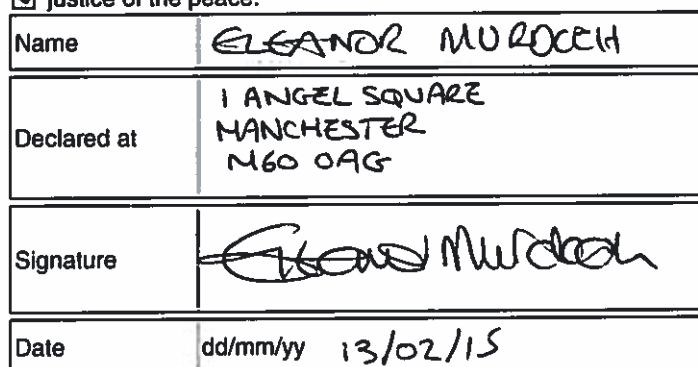 justice of the peace.
Name ELEANOR MURDOCH
Declared at 1 ANGEL SQUARE
MANCHESTER
M60 0AG
Signature Eleanor Murdoch
Date dd/mm/yy 13/02/15